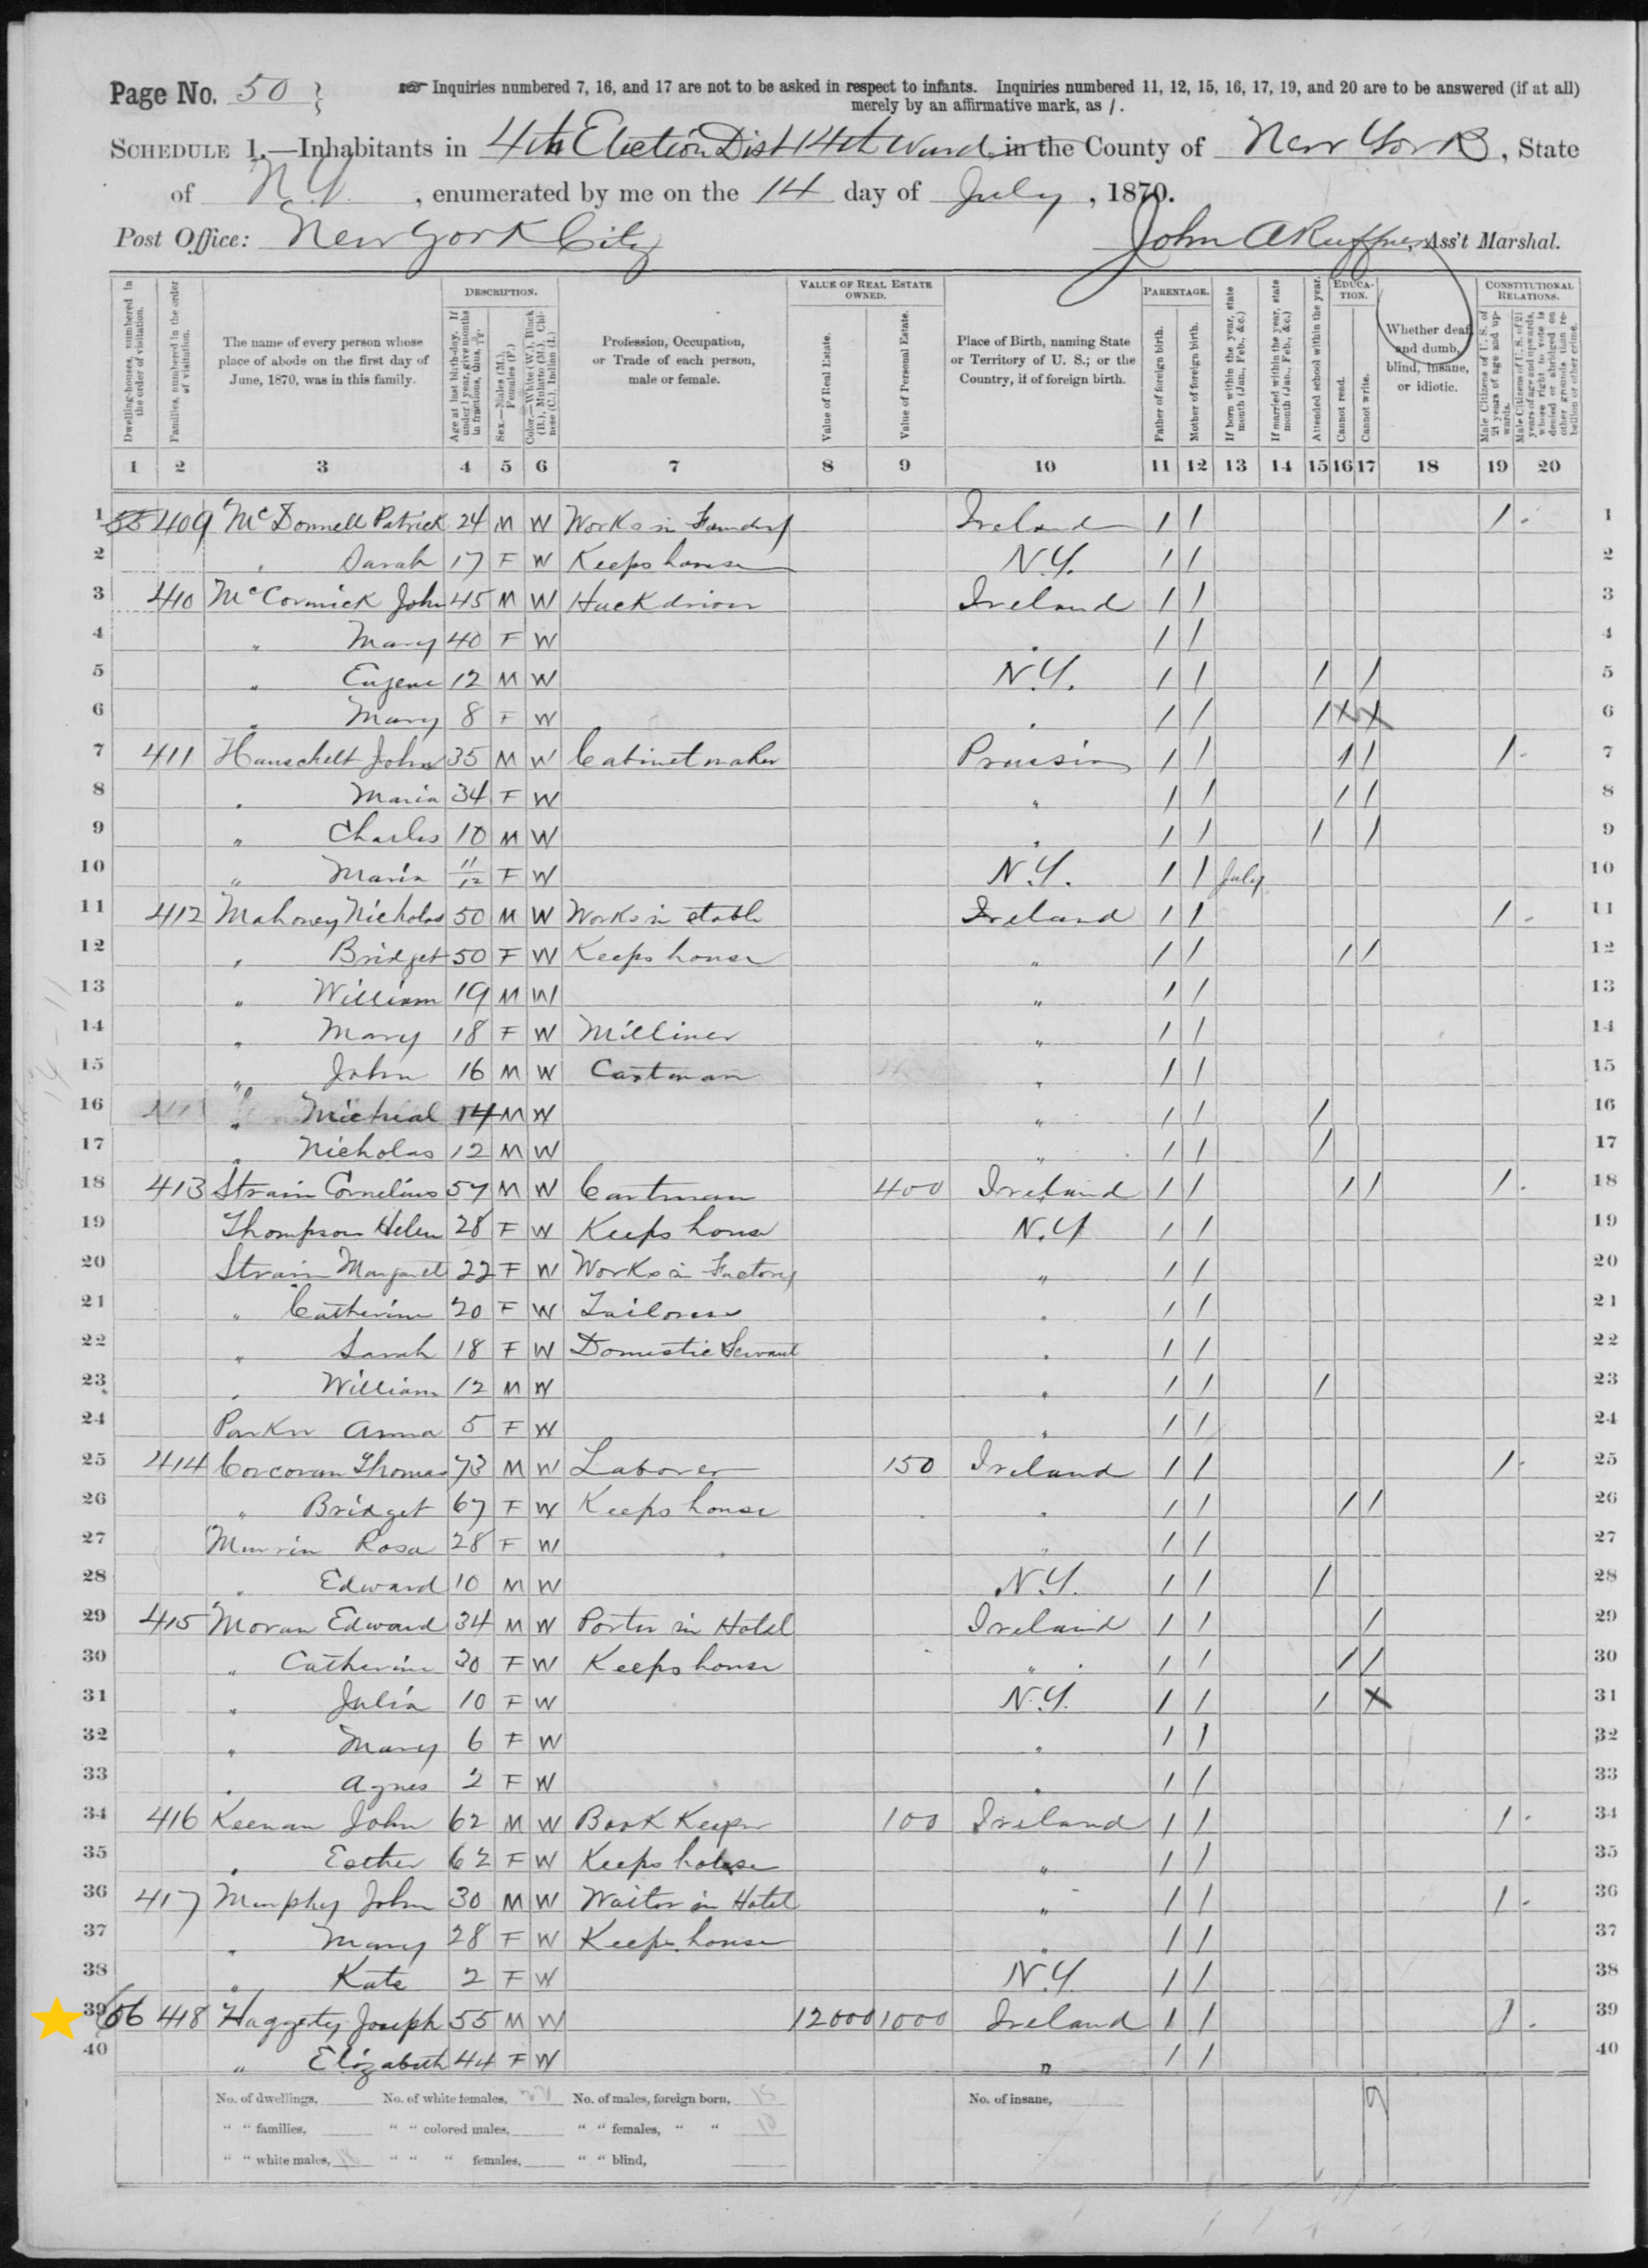 Page No. 50 } Inquiries numbered 7, 16, and 17 are not to be asked in respect to infants. Inquiries numbered 11, 12, 15, 16, 17, 19, and 20 are to be answered (if at all)
merely by an affirmative mark, as /.
SCHEDULE 1.—Inhabitants in 4th Election Dist 14th Ward, in the County of New York, State
of N.Y., enumerated by me on the 14 day of July, 1870.
Post Office: New York City John A Ruffner, Ass't Marshal.
Dwelling-houses, numbered in the order of visitation.
Families, numbered in the order of visitation.
The name of every person whose place of abode on the first day of June, 1870, was in this family.
DESCRIPTION.
Age at last birth-day. If under 1 year, give months in fractions, thus, 3/12.
Sex.—Males (M.), Females (F.)
Color.—White (W.), Black (B.), Mulatto (M.), Chinese (C.), Indian (I.)
Profession, Occupation, or Trade of each person, male or female.
VALUE OF REAL ESTATE OWNED.
Value of Real Estate.
Value of Personal Estate.
Place of Birth, naming State or Territory of U. S.; or the Country, if of foreign birth.
PARENTAGE.
Father of foreign birth.
Mother of foreign birth.
If born within the year, state month (Jan., Feb., &c.)
If married within the year, state month (Jan., Feb., &c.)
Attended school within the year.
EDUCATION.
Cannot read.
Cannot write.
Whether deaf and dumb, blind, insane, or idiotic.
CONSTITUTIONAL RELATIONS.
Male Citizens of U. S. of 21 years of age and upwards.
Male Citizens of U. S. of 21 years of age and upwards, whose right to vote is denied or abridged on other grounds than rebellion or other crime.
1 2 3 4 5 6 7 8 9 10 11 12 13 14 15 16 17 18 19 20
1 55 409 McDonnell Patrick 24 M W Works in Foundry Ireland / / / 1
2 " Sarah 17 F W Keeps house N.Y. / / 2
3 410 McCormick John 45 M W Hack driver Ireland / / 3
4 " Mary 40 F W " / / 4
5 " Eugene 12 M W N.Y. / / / / 5
6 " Mary 8 F W " / / / X X 6
7 411 Hauschelt John 35 M W Cabinet maker Prussia / / / / / 7
8 " Maria 34 F W " / / / / 8
9 " Charles 10 M W " / / / / 9
10 " Maria 11/12 F W N.Y. / / July 10
11 412 Mahoney Nicholas 50 M W Works in stable Ireland / / / 11
12 " Bridget 50 F W Keeps house " / / / / 12
13 " William 19 M W " / / 13
14 " Mary 18 F W Milliner " / / 14
15 " John 16 M W Cartman " / / 15
16 " Micheal 14 M W " / / / 16
17 " Nicholas 12 M W " / / / 17
18 413 Strain Cornelius 57 M W Cartman 400 Ireland / / / / / 18
19 Thompson Helen 28 F W Keeps house N.Y / / 19
20 Strain Margaret 22 F W Works in Factory " / / 20
21 " Catherine 20 F W Tailoress " / / 21
22 " Sarah 18 F W Domestic Servant " / / 22
23 " William 12 M W " / / / 23
24 Parker Anna 5 F W " / / 24
25 414 Corcoran Thomas 73 M W Laborer 150 Ireland / / / 25
26 " Bridget 67 F W Keeps house " / / / / 26
27 Rosa 28 F W " / / 27
28 " Edward 10 M W N.Y. / / / 28
29 415 Moran Edward 34 M W Porter in Hotel Ireland / / / 29
30 " Catherine 30 F W Keeps house " / / / / 30
31 " Julia 10 F W N.Y. / / / X 31
32 " Mary 6 F W " / / 32
33 " Agnes 2 F W " / / 33
34 416 Keenan John 62 M W Book Keeper 100 Ireland / / / 34
35 " Esther 62 F W Keeps house " / / 35
36 417 Murphy John 30 M W Waiter in Hotel " / / / 36
37 " Mary 28 F W Keeps house " / / 37
38 " Kate 2 F W N.Y. / / 38
39 56 418 Haggerty Joseph 55 M W 12000 1000 Ireland / / / 39
40 " Elizabeth 44 F W " / / 40
No. of dwellings, No. of white females, 22 No. of males, foreign born, 15 No. of insane, 9
" " families, " " colored males, " " females, " " 10
" " white males, 18 " " " females, " " blind,